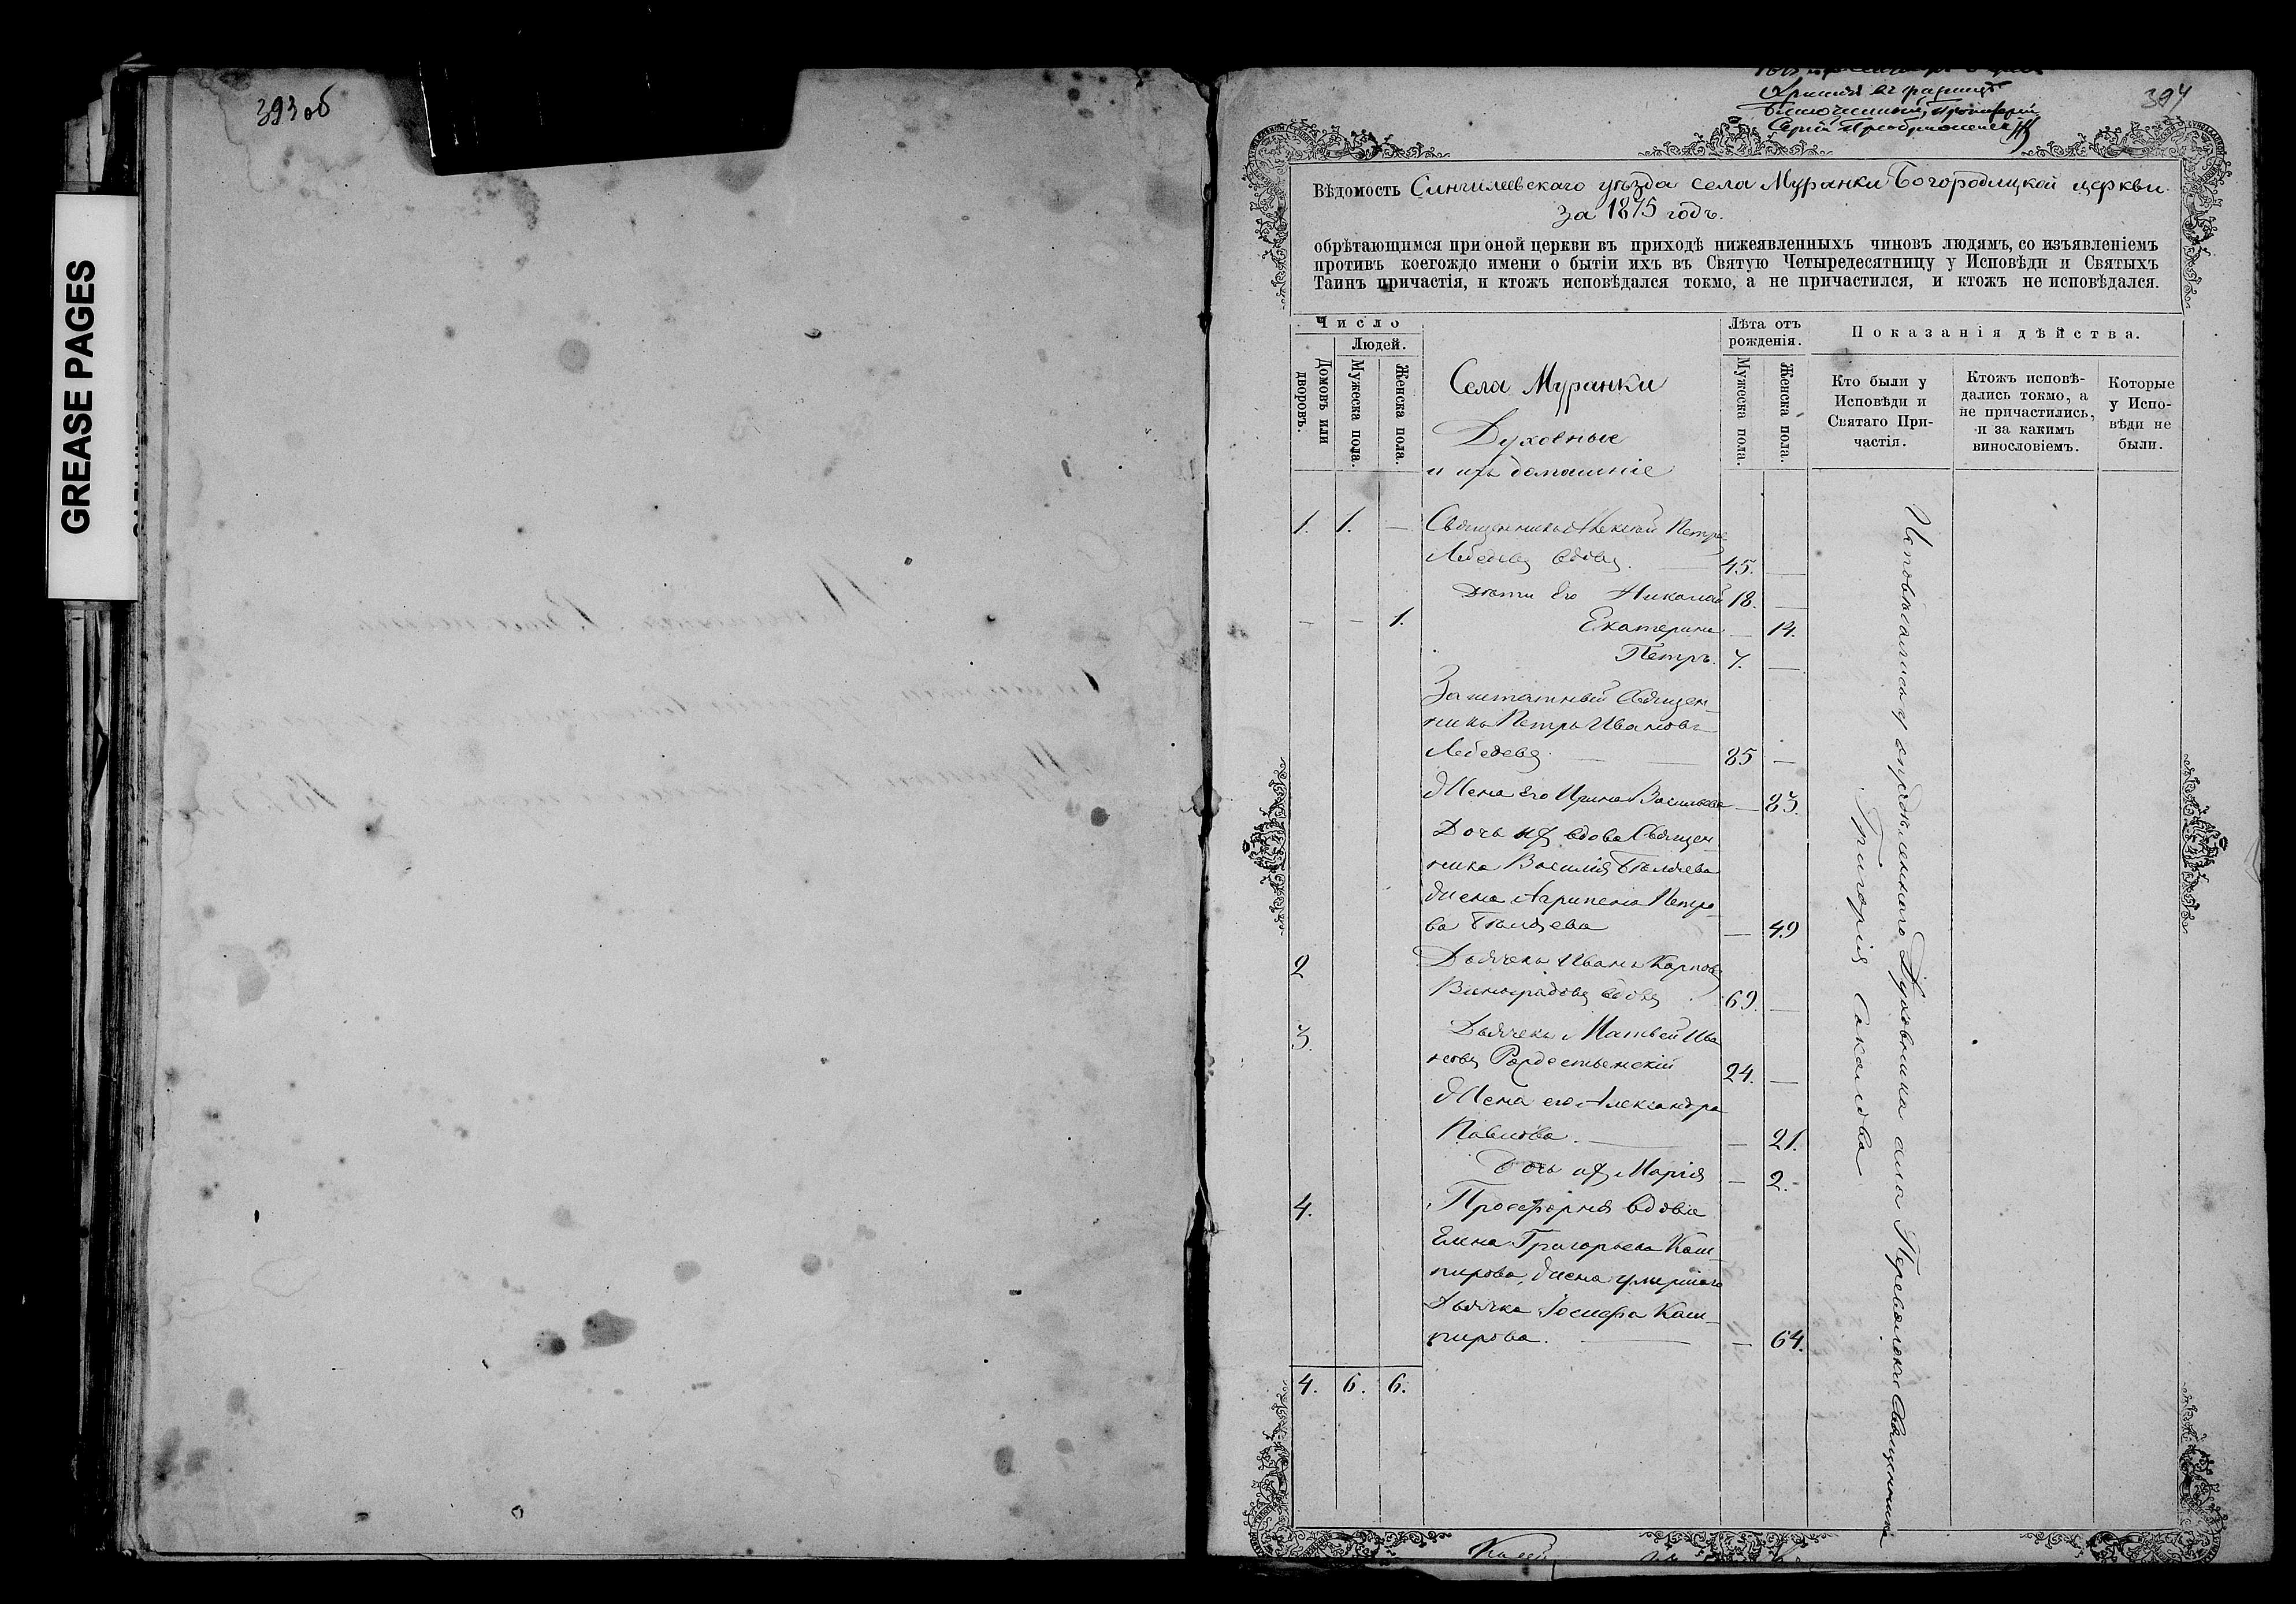 393 об
GREASE PAGES
Хранить въ ризницѣ
Благочинный, Протоіерей
Сергій Преображенскій
394
Вѣдомость Сингилеевскаго уѣзда села Муранки Богородицкой церкви
за 1875 годъ.
обрѣтающимся при оной церкви въ приходѣ нижеявленныхъ чиновъ людямъ, со изъявленіемъ
противъ коегождо имени о бытіи ихъ въ Святую Четыредесятницу у Исповѣди и Святыхъ
Таинъ причастія, и ктожъ исповѣдался токмо, а не причастился, и ктожъ не исповѣдался.
Число
Людей.
Домовъ или дворовъ.
Мужеска пола.
Женска пола.
Села Муранки
Духовные
и ихъ домашніе
Лѣта отъ рожденія.
Мужеска пола.
Женска пола.
Показанія дѣйства.
Кто были у Исповѣди и Святаго Причастія.
Ктожъ исповѣдались токмо, а не причастились, и за какимъ винословіемъ.
Которые у Исповѣди не были.
1. 1. — Священникъ Алексѣй Петровъ
Лебедевъ вдовъ. 45. —
Дѣти его Николай 18. —
— — 1. Екатерина — 14.
Петръ. 7. —
Заштатный Священ-
никъ Петръ Ивановъ
Лебедевъ — 85 —
Жена его Ирина Васильева — 83.
Дочь ихъ вдова Священ
ника Василія Бѣляева
жена Агрипена Петро-
ва Бѣляева — 49
2 Дьячекъ Иванъ Карповъ
Виноградовъ вдовъ 69. —
3. Дьячекъ Матвей Ива
новъ Рождественскій 24. —
Жена его Александра
Павлова. — 21.
Дочь ихъ Марія — 2.
4. Просфорня вдова
Елена Григорьева Каш-
пирова, жена умершаго
Дьячка Іосифа Каш-
пирова. — 64.
4. 6. 6.
Исповѣдались у опредѣленнаго Духовника села Переволокъ Священника
Григорія Соколова